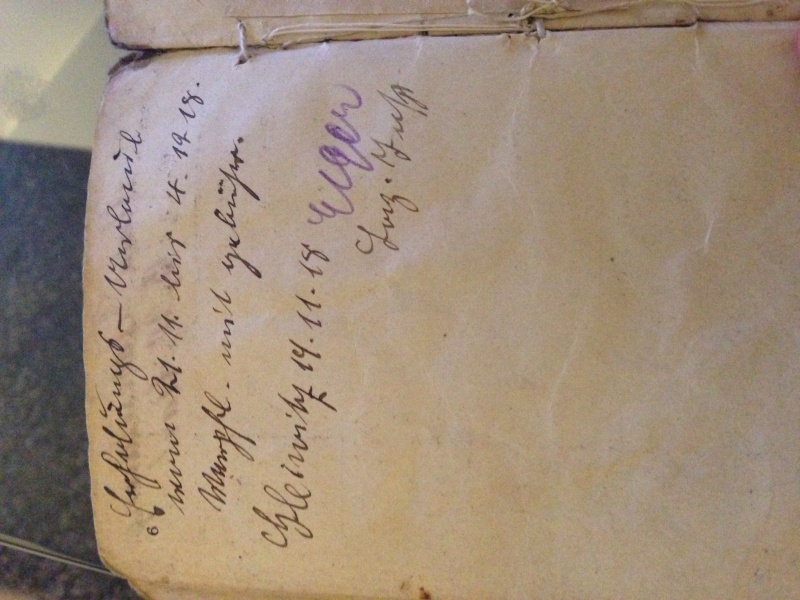 Erholungs-Urlaub
vom 21. 11. bis 4. 12. 18.
Verpfl. mit gebühr.
Gleiwitz 14. 11. 18